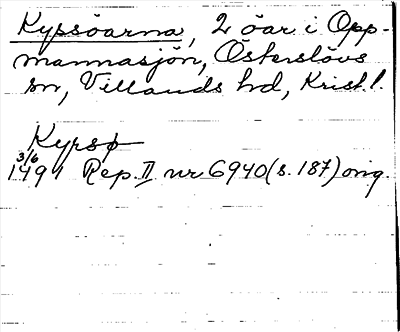 Kyrsöarna, 2 öar i Opp-
mannasjön, Österslövs
sn, Villands hd, Krist. l.
Kyrsø
3/6
1491 Rep. II nr 6940 (s. 187) orig.